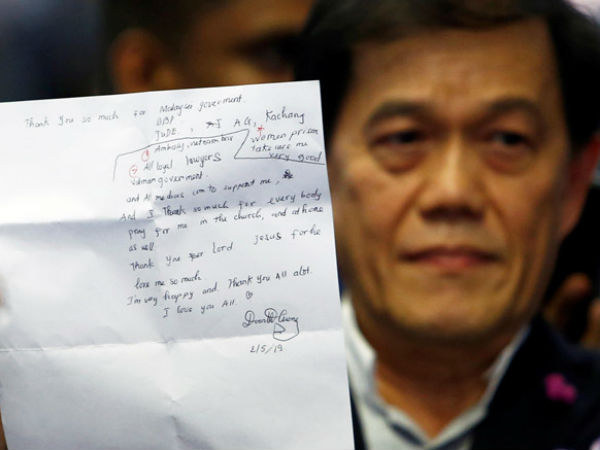 Thank you so much for Malaysei goverment.
DPP
JUDE, I AG, Kachang
① Ambasy, vietnam bar * Women prison
take care me
② All loyal lawyers very good
vietnam government.
and All medias com to support me,
And I Thank so much for every body
pray for me in the church, and at home
as well.
Thank you lord Jesus for he
love me so much.
I'm very happy and. Thank you All alot.
I love you All.
2/5/19